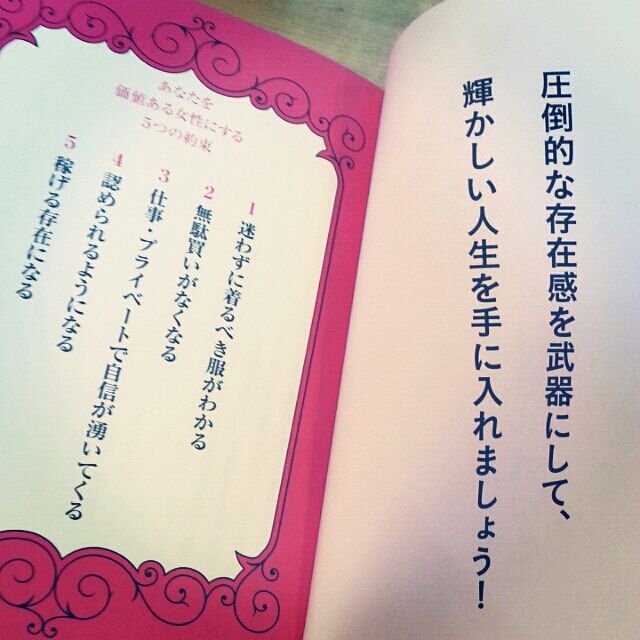 圧倒的な存在感を武器にして、
輝かしい人生を手に入れましょう！
あなたを
価値ある女性にする
5つの約束
1 迷わずに着るべき服がわかる
2 無駄買いがなくなる
3 仕事・プライベートで自信が湧いてくる
4 認められるようになる
5 稼げる存在になる